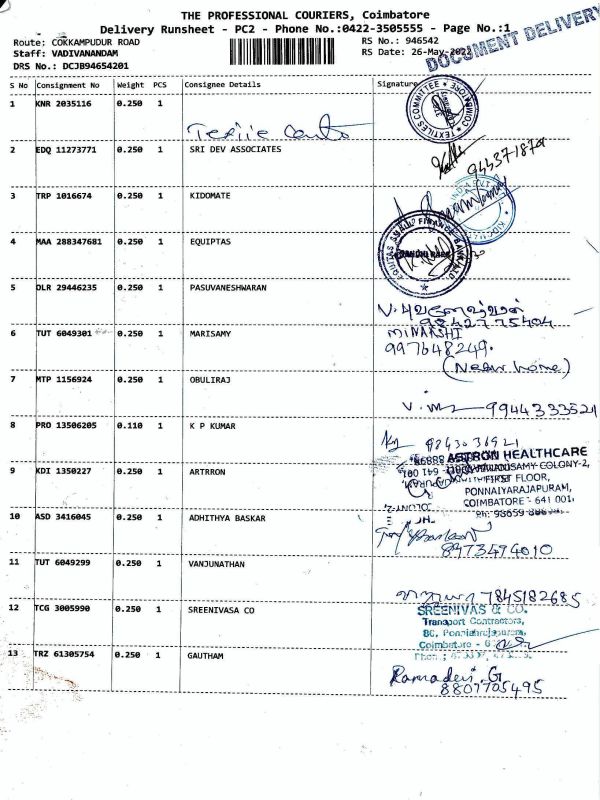 THE PROFESSIONAL COURIERS, Coimbatore
Delivery Runsheet - PC2 - Phone No.:0422-3505555 - Page No.:1
DOCUMENT DELIVERY
Route: COKKAMPUDUR ROAD
Staff: VADIVANANDAM
DRS No.: DCJB94654201
RS No.: 946542
RS Date: 26-May-2022
S No Consignment No Weight PCS Consignee Details Signature
1 KNR 2035116 0.250 1
TEXTILES COMMITTEE
COIMBATORE
2 EDQ 11273771 0.250 1 SRI DEV ASSOCIATES
3 TRP 1016674 0.250 1 KIDOMATE
4 MAA 288347681 0.250 1 EQUIPTAS
EQUITAS SMALL FINANCE BANK
5 DLR 29446235 0.250 1 PASUVANESHWARAN
9842775404
6 TUT 6049301 0.250 1 MARISAMY
MINAKSHI
997648249.
(Near home)
7 MTP 1156924 0.250 1 OBULIRAJ
9944333521
8 PRO 13506205 0.110 1 K P KUMAR
9843036921
9 KDI 1350227 0.250 1 ARTRRON
ASTRON HEALTHCARE
FIRST FLOOR,
PONNAIYARAJAPURAM,
COIMBATORE - 641 001.
10 ASD 3416045 0.250 1 ADHITHYA BASKAR
8973474010
11 TUT 6049299 0.250 1 VANJUNATHAN
7845182685
12 TCG 3005990 0.250 1 SREENIVASA CO
SREENIVAS & CO.
Transport Contractors,
Coimbatore - 6
13 TRZ 61305754 0.250 1 GAUTHAM
Ramadevi. G
8807705495